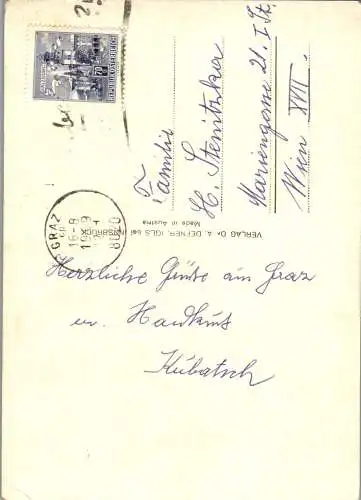 Familie
H. Stenitzka
Mariengasse 21. I. St.
Wien XVII.
VERLAG Dr. A. DEFNER, IGLS bei INNSBRUCK
Made in Austria
GRAZ
8020
REPUBLIK ÖSTERREICH
Herzliche Grüße aus Graz
u. Handkuß
Kubatsch